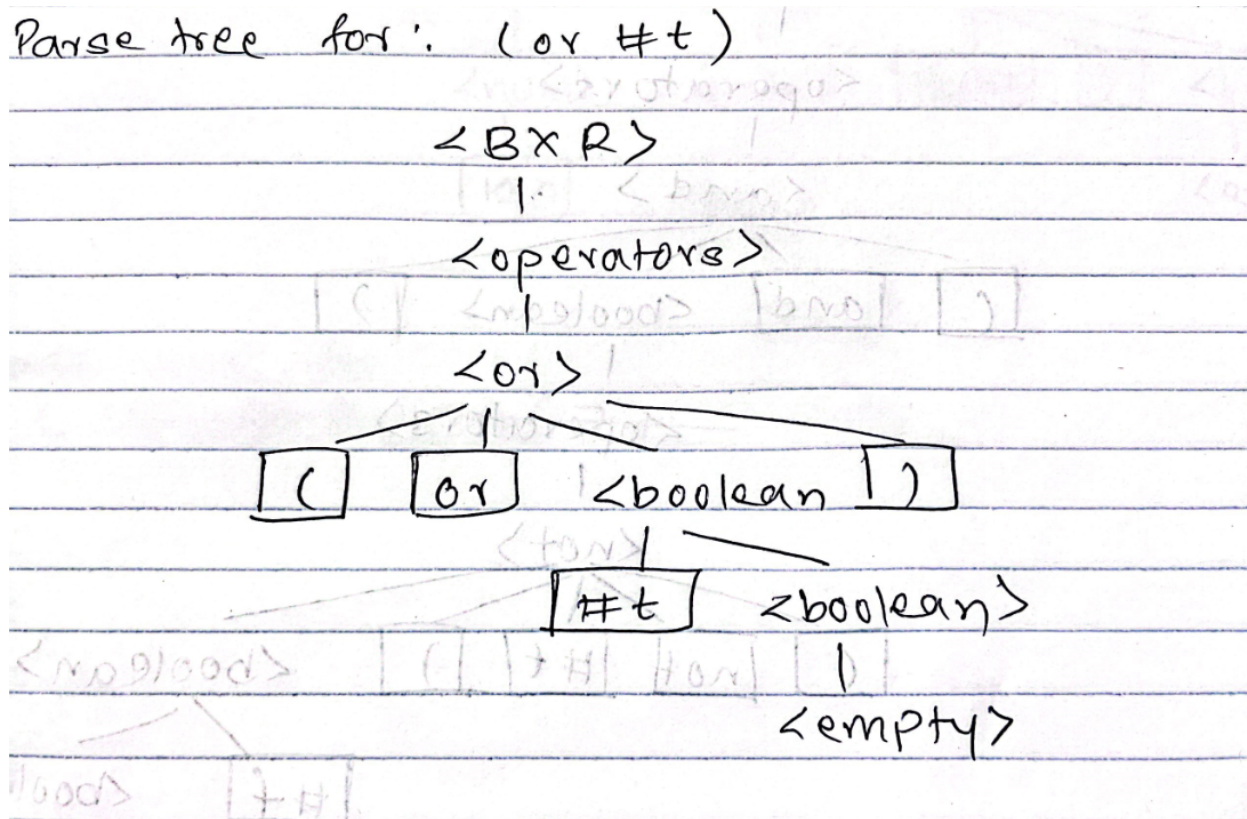 Parse tree for: (or #t)
<BXR>
<operators>
<or>
( or <boolean )
#t <boolean>
<empty>